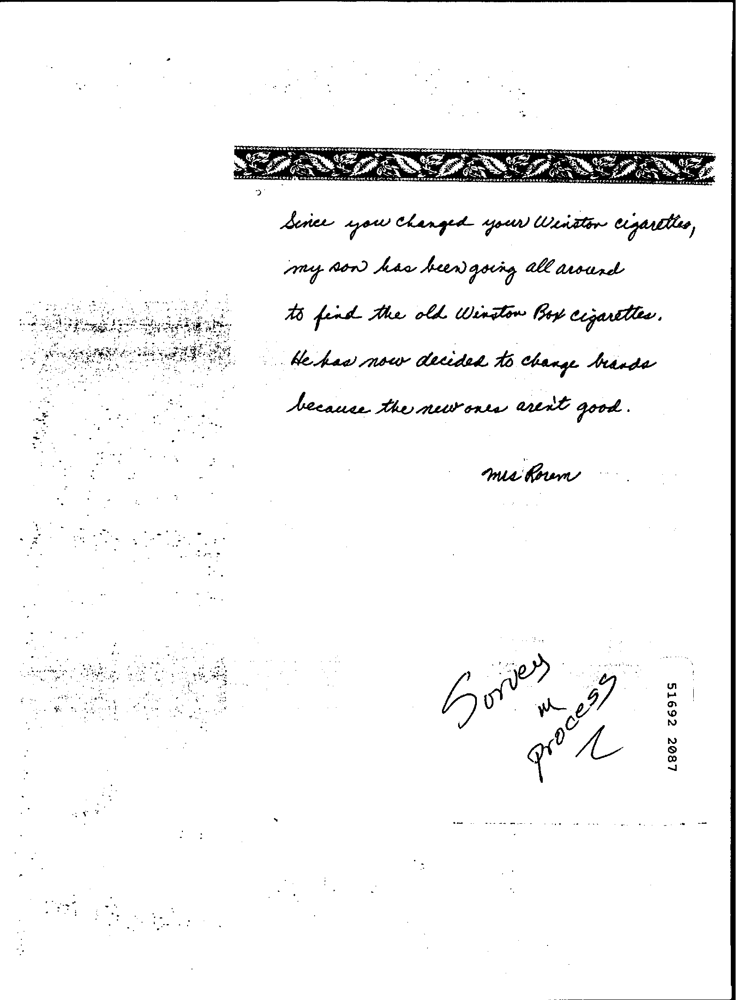 Since you changed your Winston cigarettes,
my son has been going all around
to find the old Winston Box cigarettes.
He has now decided to change brands
because the new ones aren't good.
Mrs Rorem
Survey
in
process
51692 2087